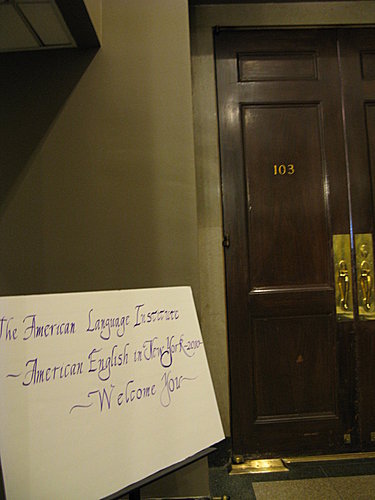 103
The American Language Institute
~American English in New York-2010-
~Welcome You~